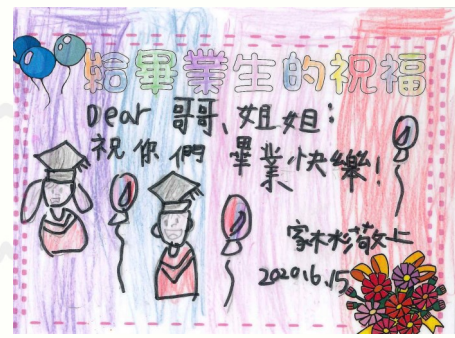 給畢業生的祝福
Dear 哥哥、姐姐：
祝你們 畢業快樂！
家彬敬上
2020.6.15